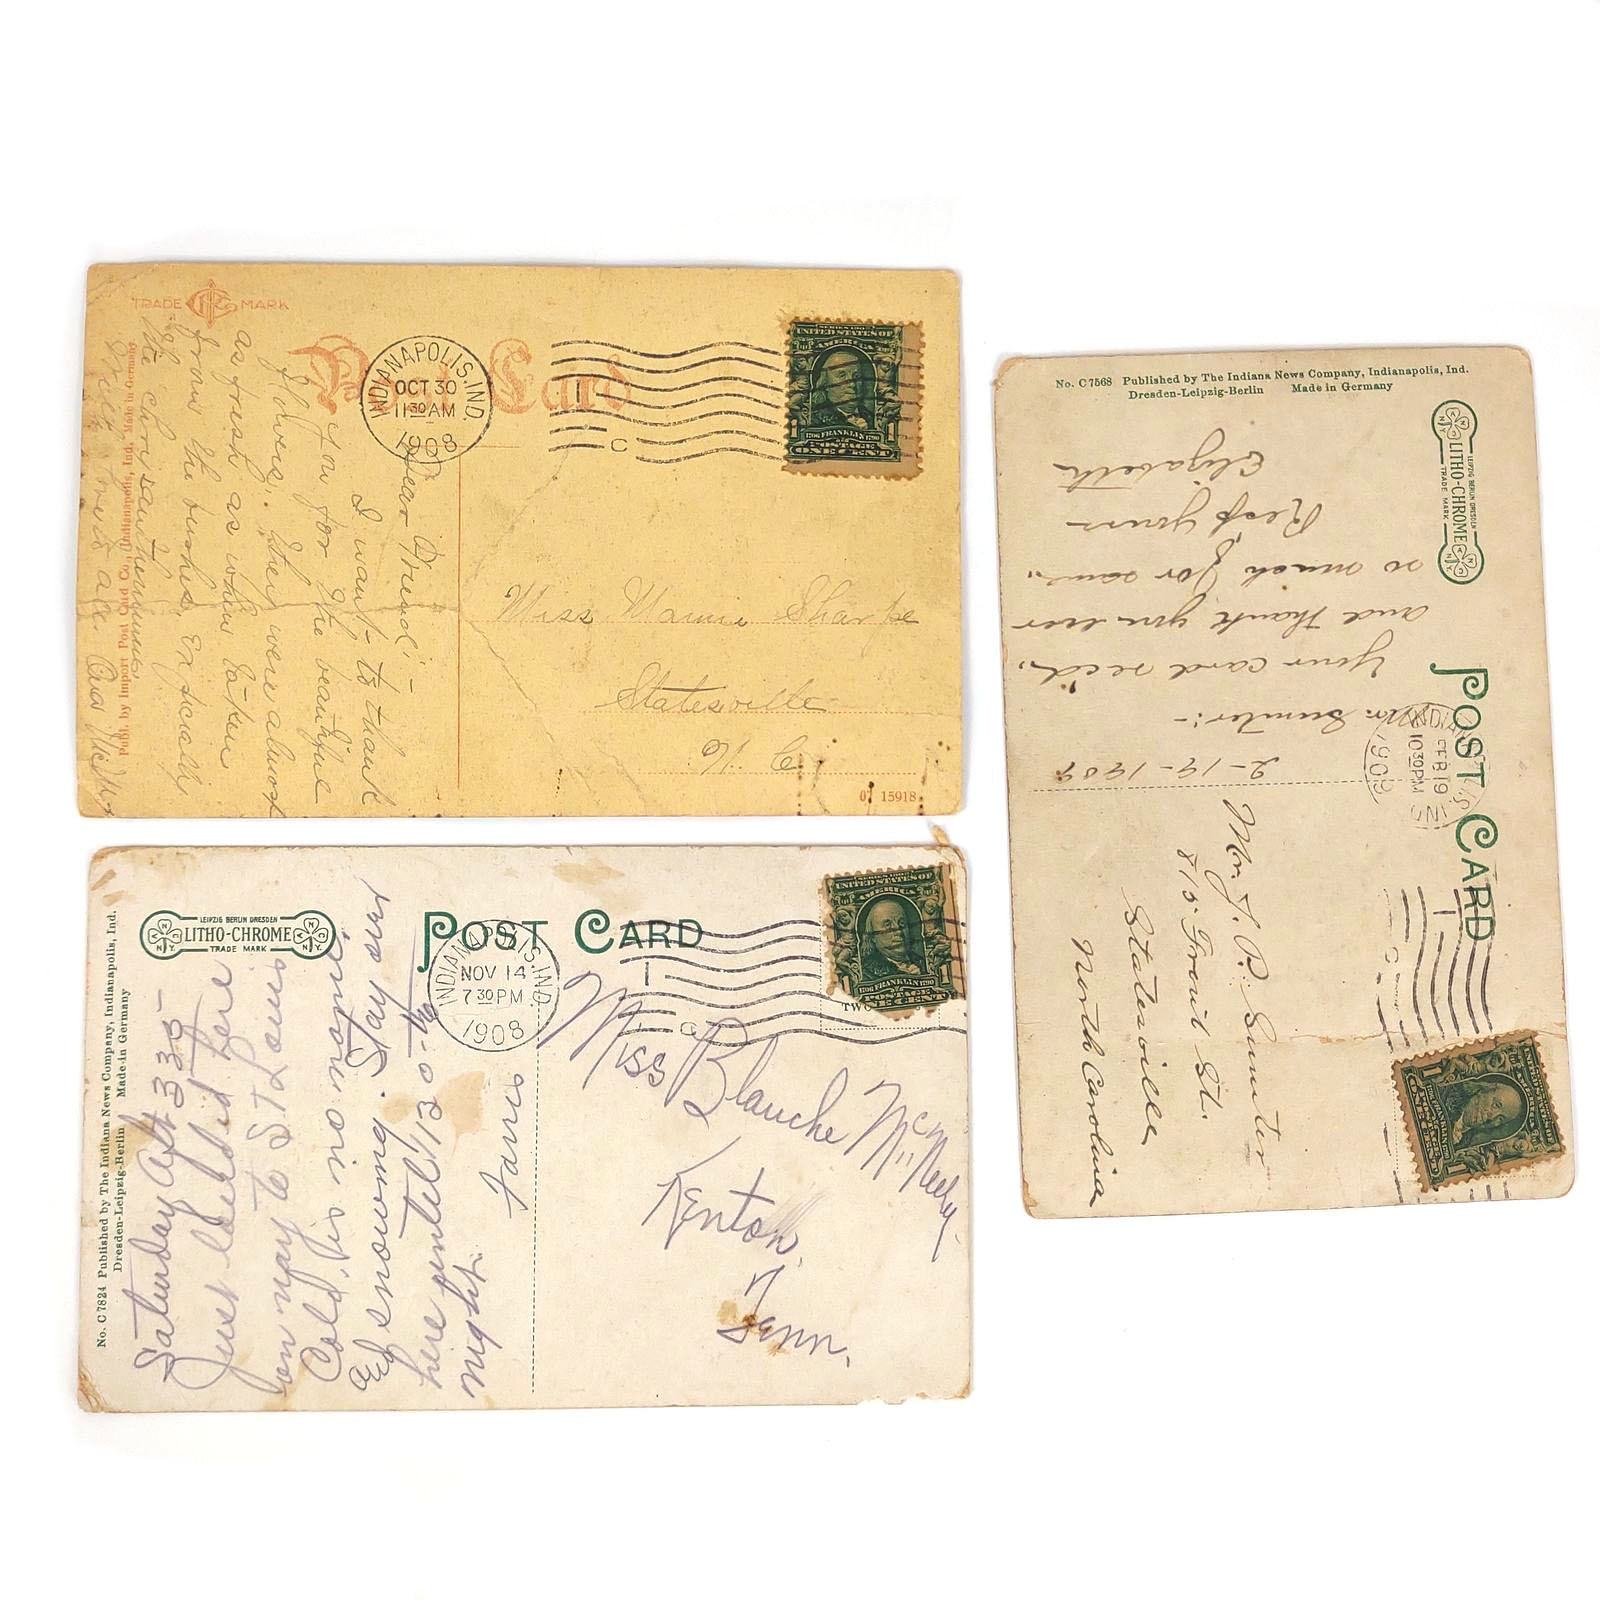 TRADE MARK
Post Card
INDIANAPOLIS, IND.
OCT 30
11 30 AM
1908
C
SERIES 1902
UNITED STATES OF
AMERICA
1706 FRANKLIN 1790
POSTAGE
ONE CENT
Dear Friend:-
I want to thank
you for the beautiful
flowers. They were almost
as fresh as when taken
from the bushes. Especially
the carnsanthemums
Write
Miss Mamie Sharpe
Statesville
N. C.
Publ. by Import Post Card Co., Indianapolis, Ind. Made in Germany
07 15918
LEIPZIG BERLIN DRESDEN
LITHO-CHROME
TRADE MARK
POST CARD
INDIANAPOLIS, IND.
NOV 14
7 30 PM
1908
C
SERIES 1902
UNITED STATES OF
AMERICA
1706 FRANKLIN 1790
POSTAGE
ONE CENT
TWO
No. C 7824 Published by The Indiana News Company, Indianapolis, Ind.
Dresden-Leipzig-Berlin Made in Germany
Saturday Aft 335-
Just landed here
on my way to St Louis
Cold
& snowing. Stay over
here until 130
night.
Miss Blanche McNeely
Kenton
Tenn.
No. C 7568 Published by The Indiana News Company, Indianapolis, Ind.
Dresden-Leipzig-Berlin Made in Germany
LEIPZIG BERLIN DRESDEN
LITHO-CHROME
TRADE MARK
POST CARD
FEB 19
10 30 PM
1909
IND.
2-19-1909
Mr. Sumter:-
Your card recd.
and thank you ever
so much for same.
Resp yours
Elizabeth
Mr. J. P. Sumter
815 Front St.
Statesville
North Carolina
1706 FRANKLIN 1790
POSTAGE
ONE CENT